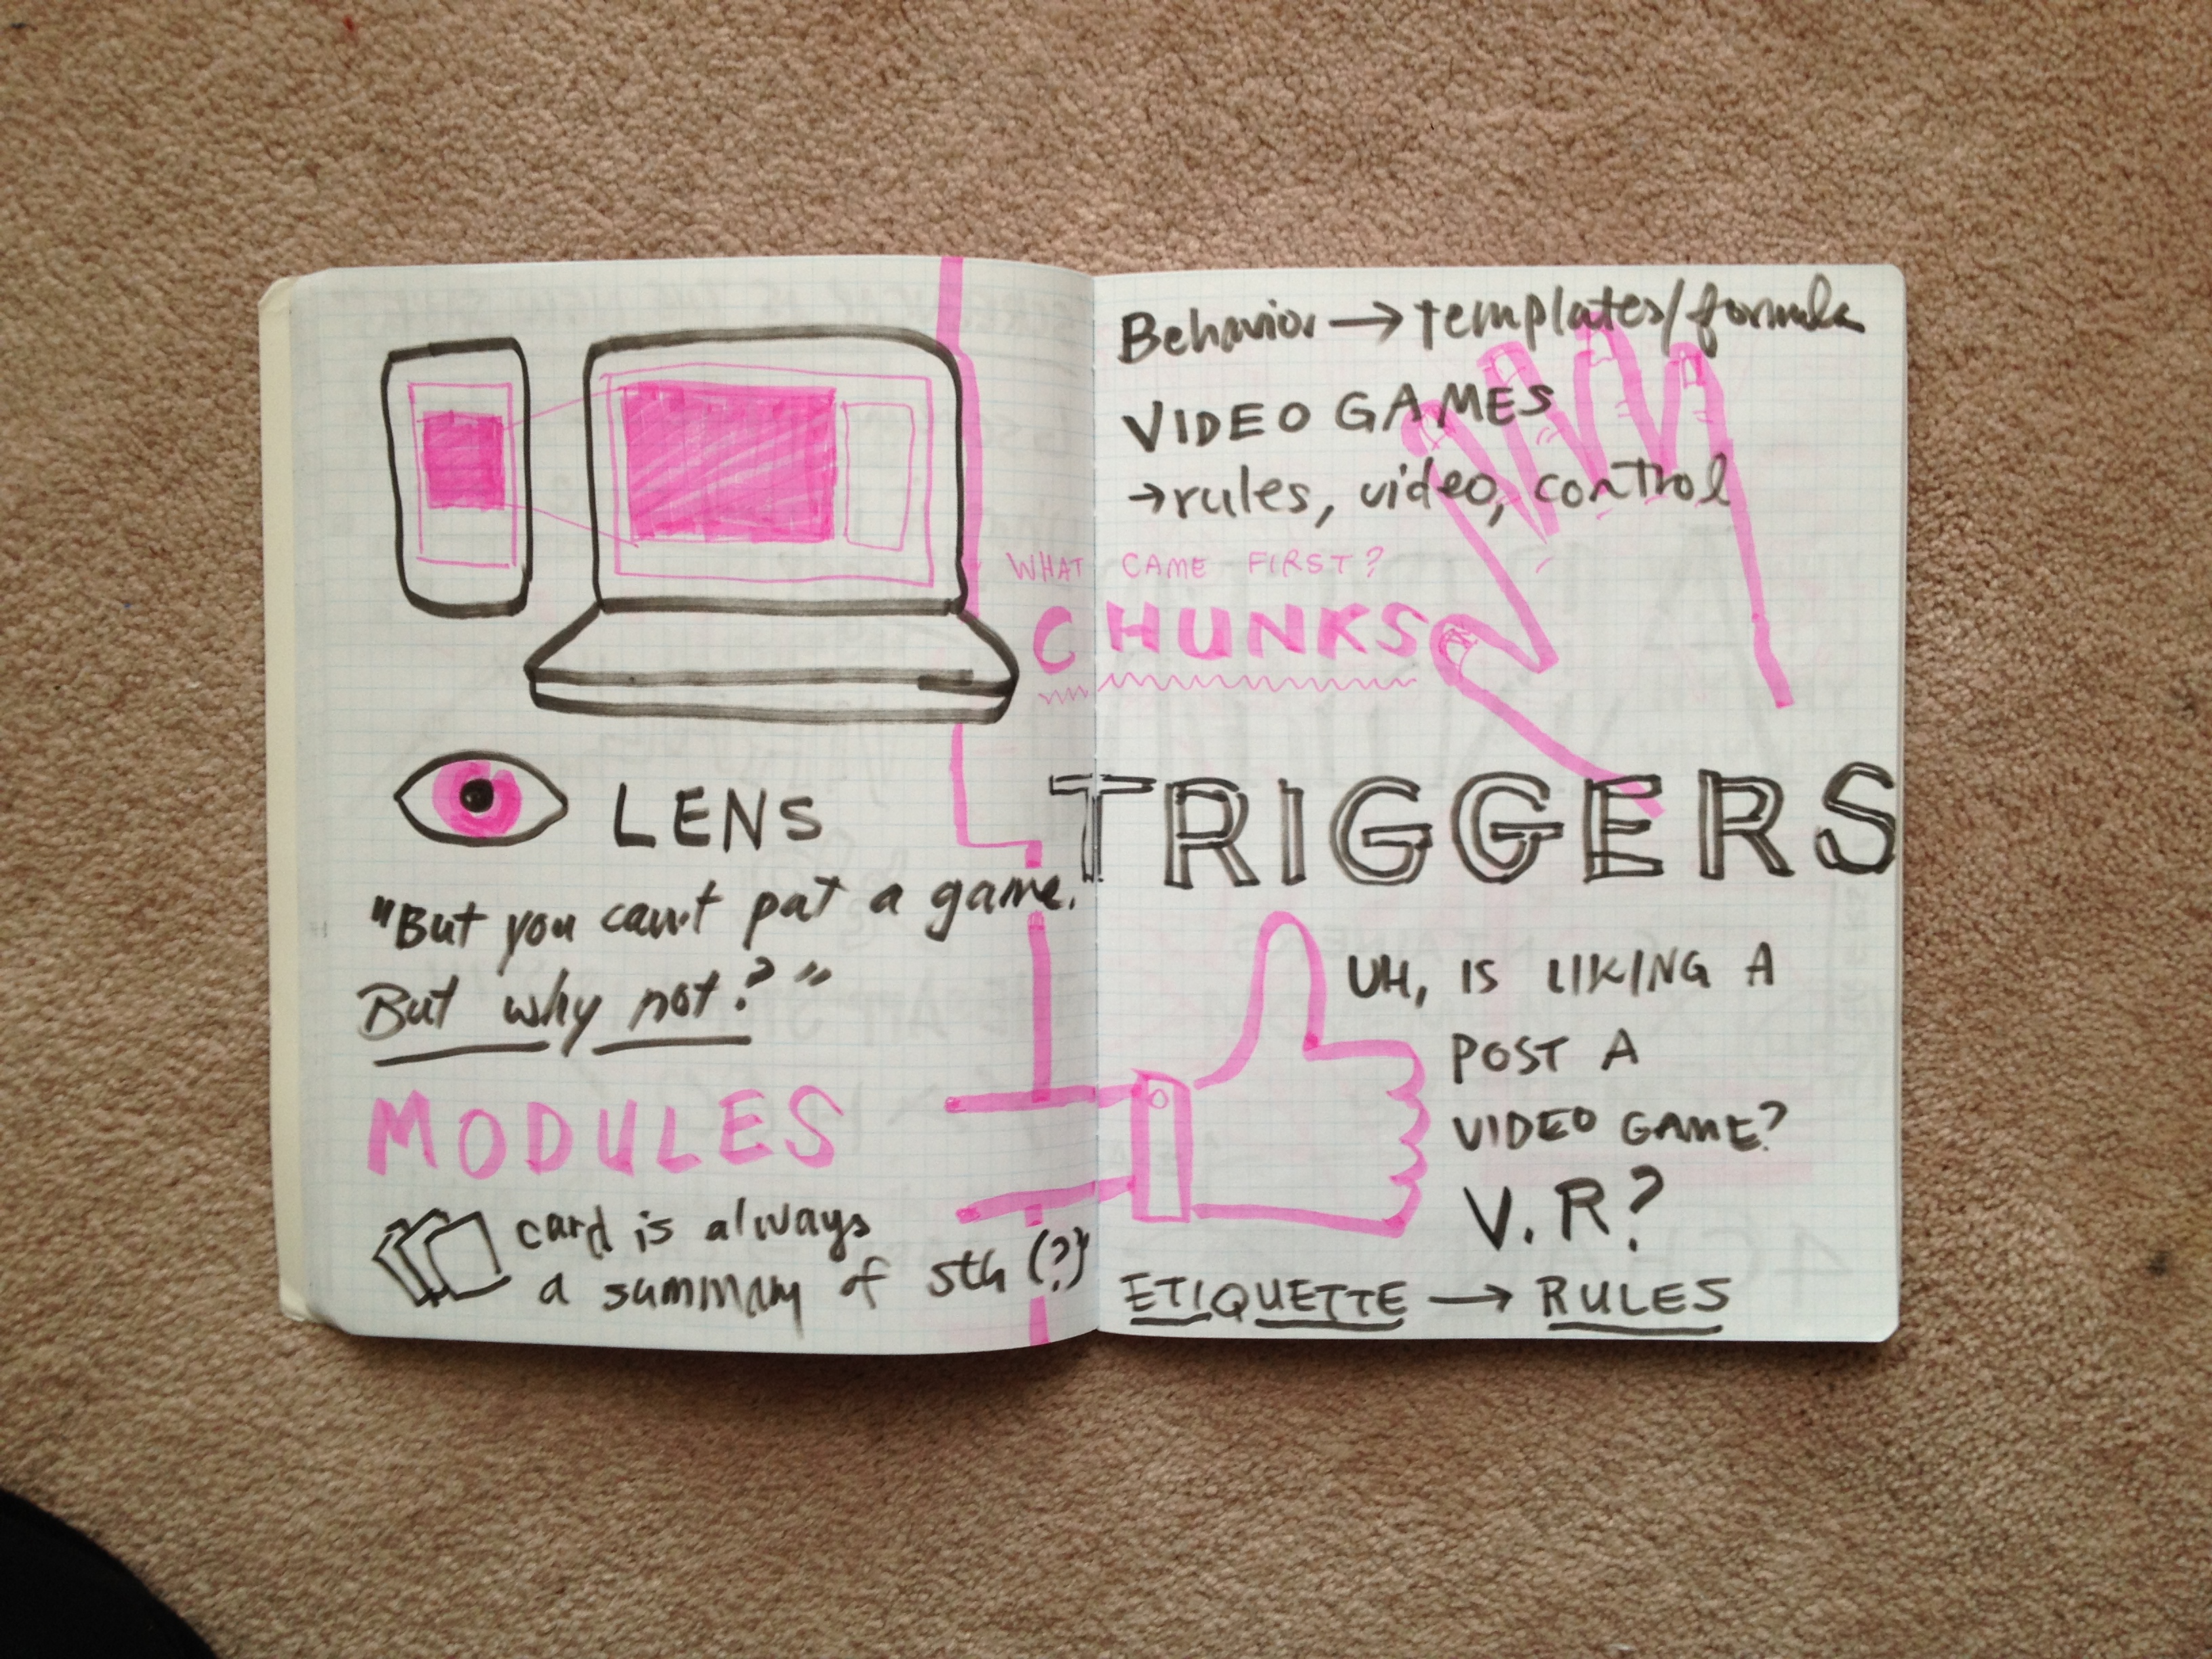 LENS
"But you can't pat a game.
But why not?"
MODULES
card is always
a summary of sth (?)
Behavior → templates/formula
VIDEO GAMES
→ rules, video, control
WHAT CAME FIRST?
CHUNKS
TRIGGERS
UH, IS LIKING A
POST A
VIDEO GAME?
V.R?
ETIQUETTE → RULES